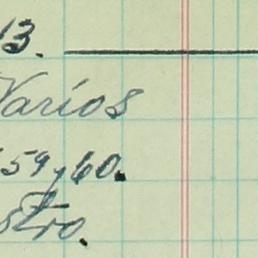 13.
Varios
59 y 60.
stro.